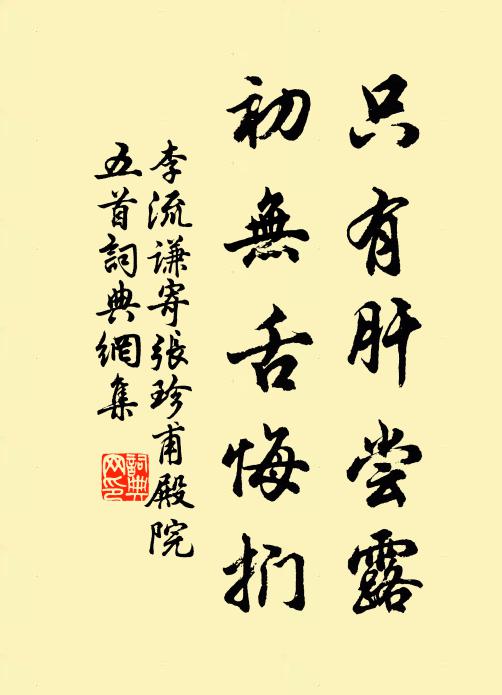 只有肝尝露
初無舌悔捫
李流谦寄張珍甫殿院
五首詞典網集
詞典网印